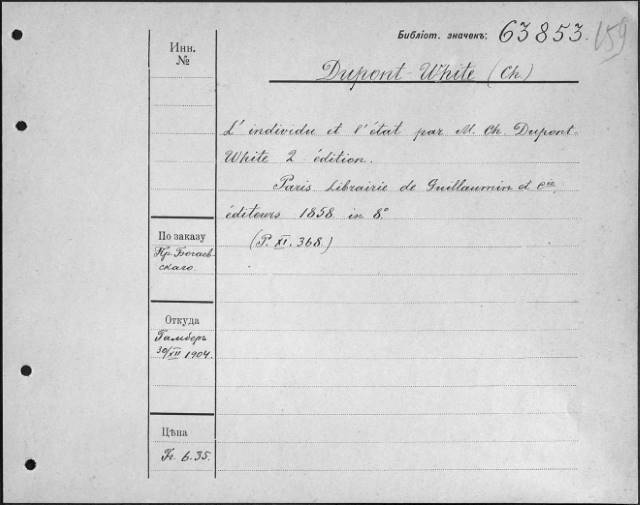 Библіот. значекъ: 63853. 159
Инв.
№
Dupont-White (Ch.)
L'individu et l'état par M. Ch. Dupont-
White 2 édition.
Paris Librairie de Guillaumin et Cie,
éditeurs 1858 in 8.°
(P. XI. 368.)
По заказу
Пр. Богаев-
скаго.
Откуда
Гамберъ
30/XII 1904.
Цѣна
Fr. 6.35.